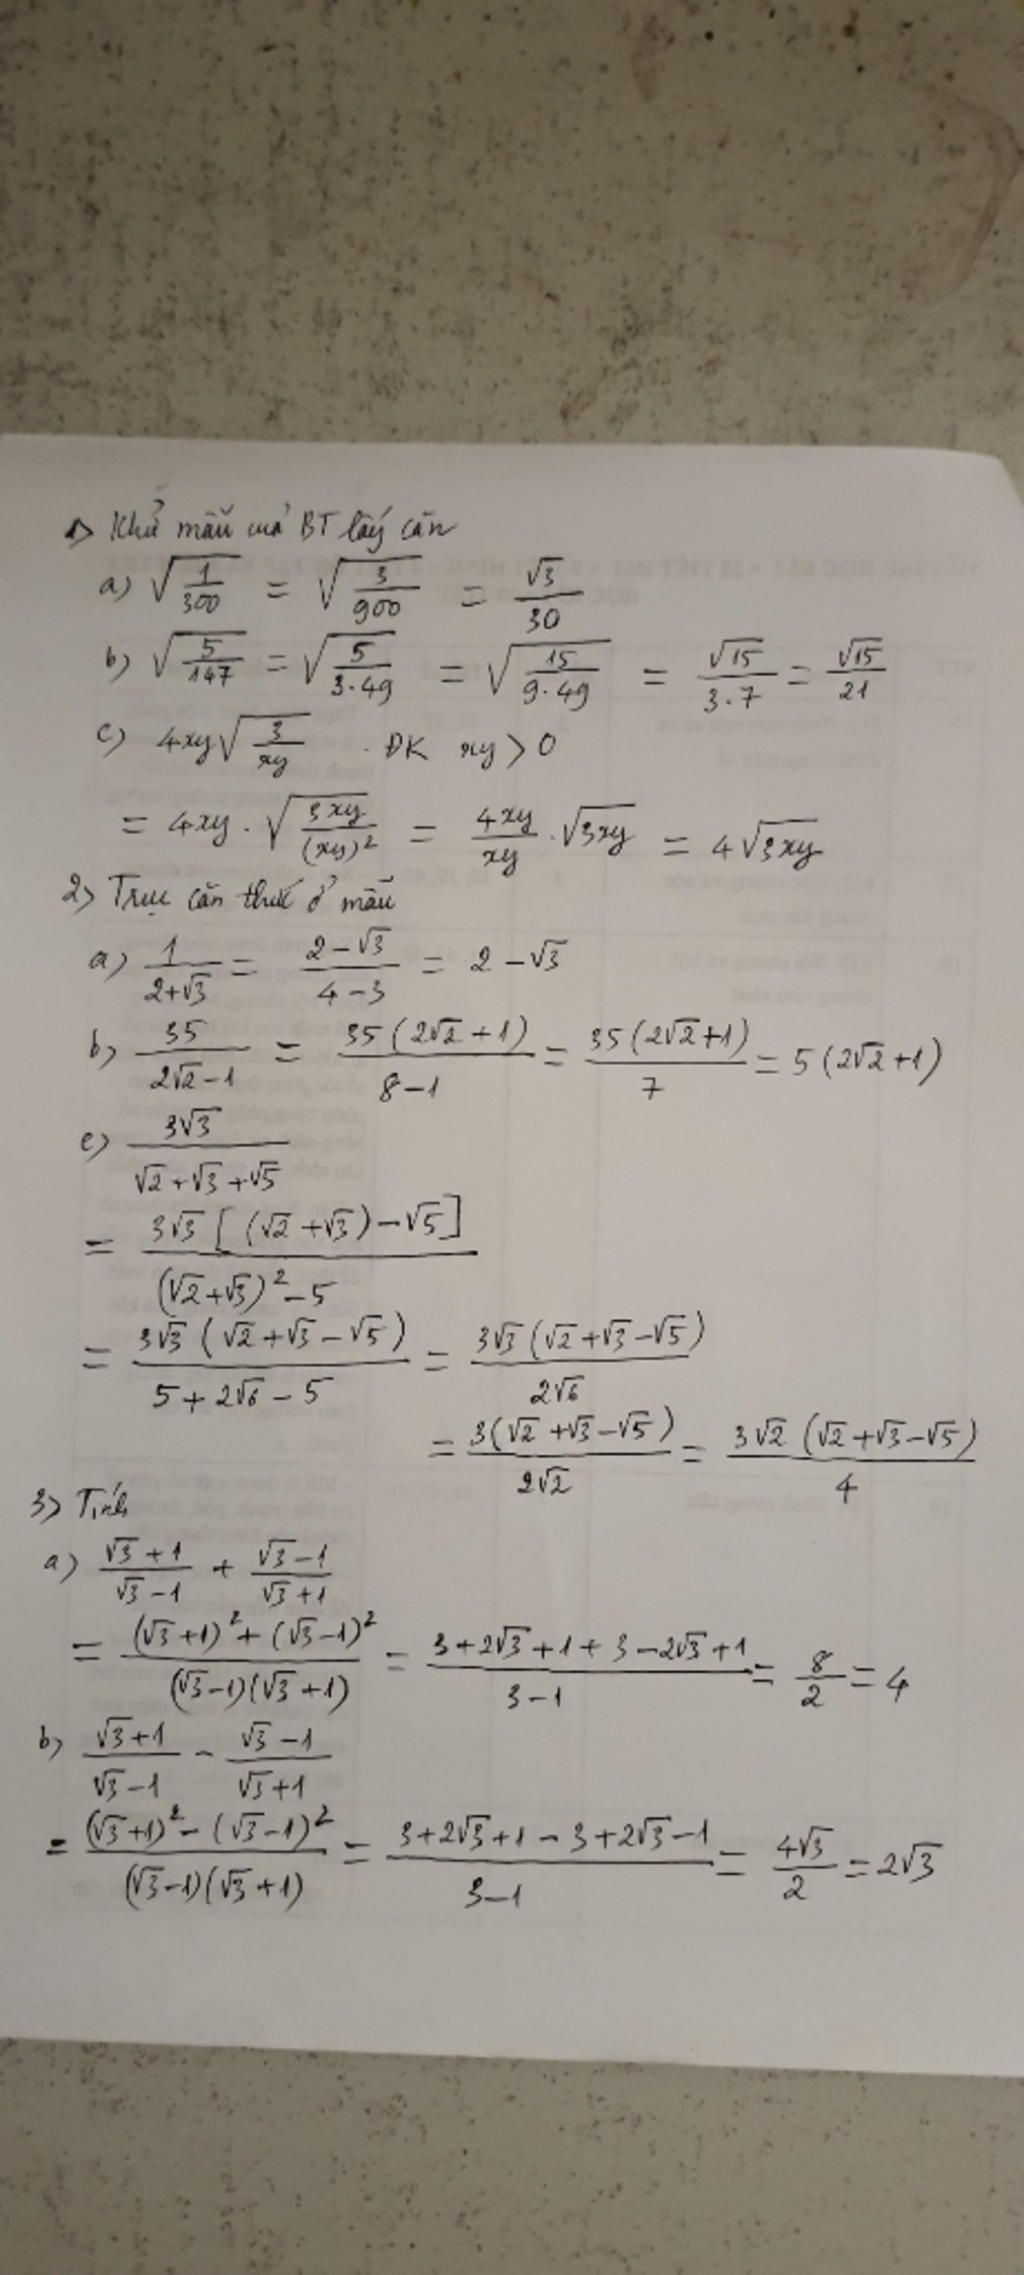 1) Khử mẫu của BT lấy căn
a) √(1/300) = √(3/900) = √3/30
b) √(5/147) = √(5/(3·49)) = √(15/(9·49)) = √15/(3·7) = √15/21
c) 4xy√(3/xy) . ĐK xy > 0
= 4xy · √(3xy/(xy)²) = 4xy/xy · √3xy = 4√3xy
2) Trục căn thức ở mẫu
a) 1/(2+√3) = (2-√3)/(4-3) = 2-√3
b) 35/(2√2-1) = 35(2√2+1)/(8-1) = 35(2√2+1)/7 = 5(2√2+1)
c) 3√3/(√2+√3+√5)
= 3√3[(√2+√3)-√5]/((√2+√3)²-5)
= 3√3(√2+√3-√5)/(5+2√6-5) = 3√3(√2+√3-√5)/(2√6)
= 3(√2+√3-√5)/(2√2) = 3√2(√2+√3-√5)/4
3) Tính
a) (√3+1)/(√3-1) + (√3-1)/(√3+1)
= ((√3+1)²+(√3-1)²)/((√3-1)(√3+1)) = (3+2√3+1+3-2√3+1)/(3-1) = 8/2 = 4
b) (√3+1)/(√3-1) - (√3-1)/(√3+1)
= ((√3+1)²-(√3-1)²)/((√3-1)(√3+1)) = (3+2√3+1-3+2√3-1)/(3-1) = 4√3/2 = 2√3